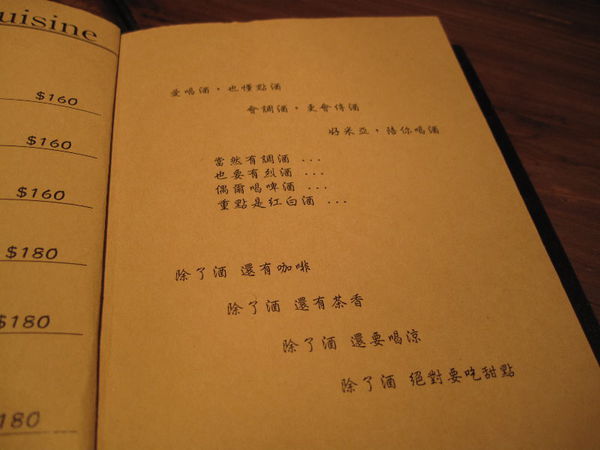 uisine
$160
$160
$160
$180
$180
180
愛喝酒，也懂點酒
會調酒，更會侍酒
好米亞，陪你喝酒
當然有調酒 ...
也要有烈酒 ...
偶爾喝啤酒 ...
重點是紅白酒 ...
除了酒 還有咖啡
除了酒 還有茶香
除了酒 還要喝涼
除了酒 絕對要吃甜點